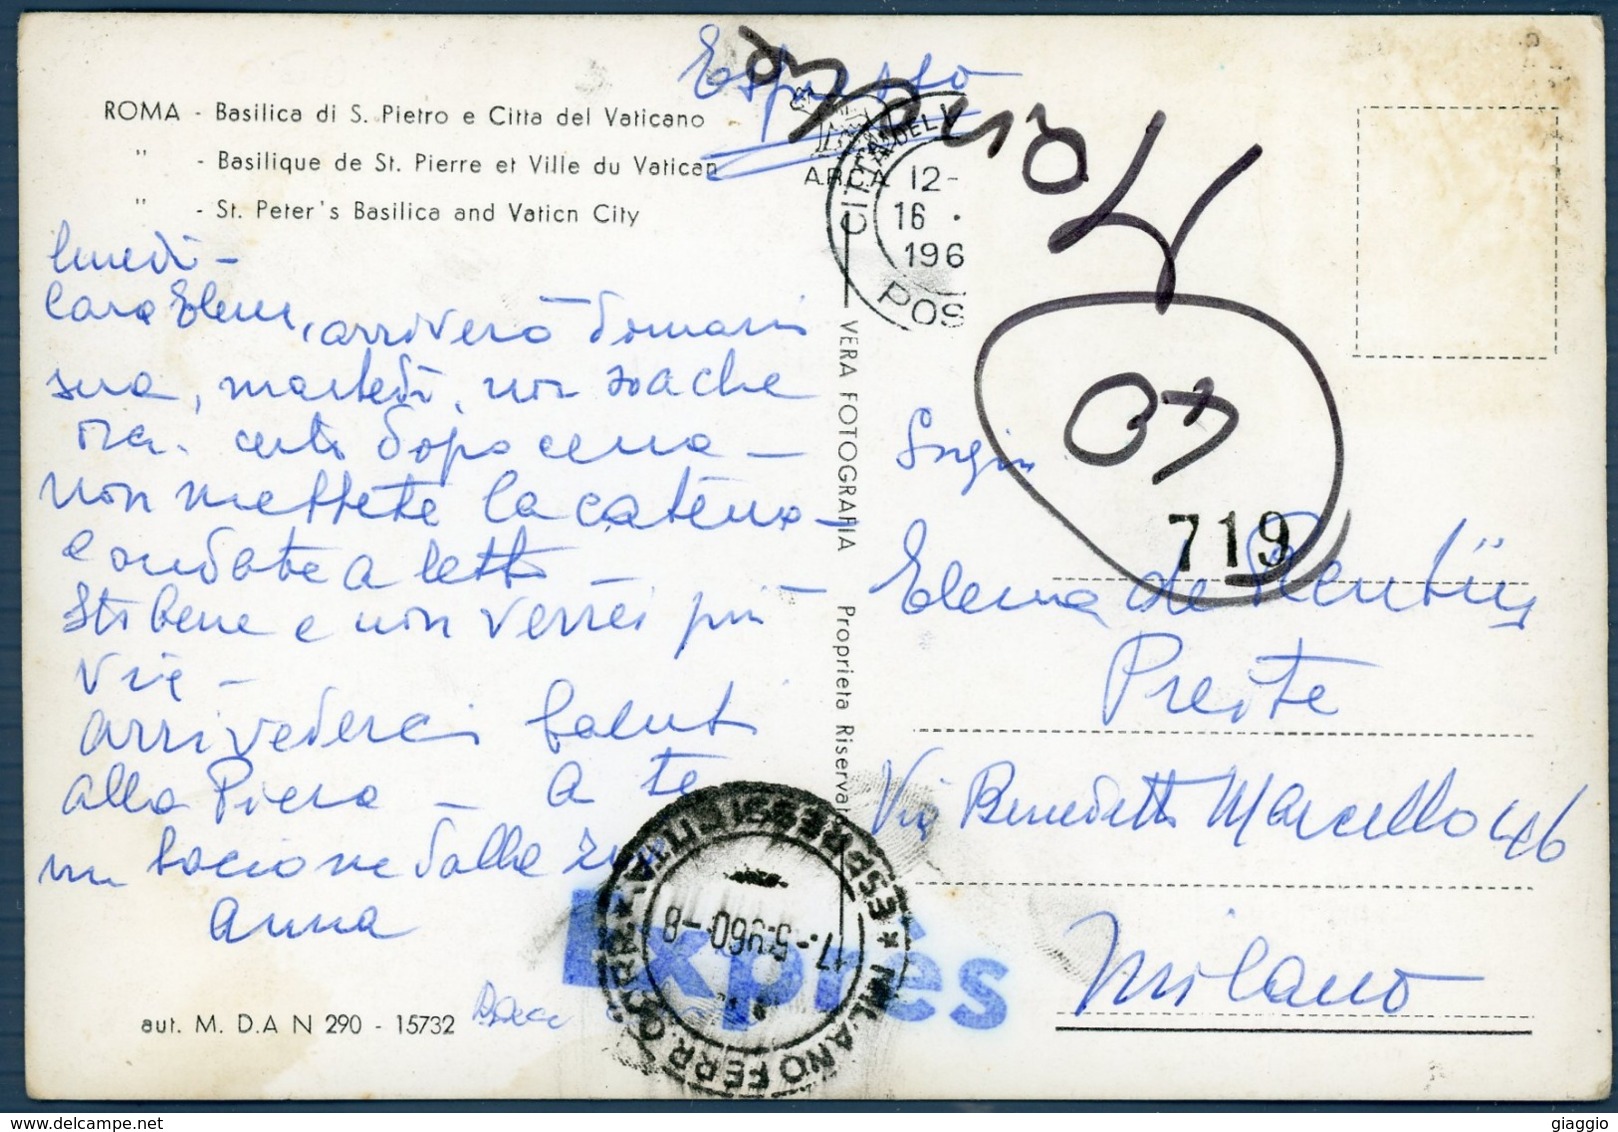 Espresso
ROMA - Basilica di S. Pietro e Citta del Vaticano
" - Basilique de St. Pierre et Ville du Vatican
" - St. Peter's Basilica and Vaticn City
lunedì -
Cara Elena, arriverò domani
sera, martedì, non so a che
ora. certo dopo cena -
non mettete la catena -
e andate a letto -
Sto bene e non verrei più
via -
arrivederci saluti
alla Piera - a te
un bacione dalla zia
Anna
aut. M. D.A N 290 - 15732
VERA FOTOGRAFIA Proprieta Riservat
A.R.C.A.
CITTA DEL V
12-
16 .
196
POS
40
719
Elena de
Preite
Via Benedetto Marcello 46
Milano
Exprès
* MILANO FERR. CORR. * ESPRESSI CITTA
17-5-960-8
giaggio